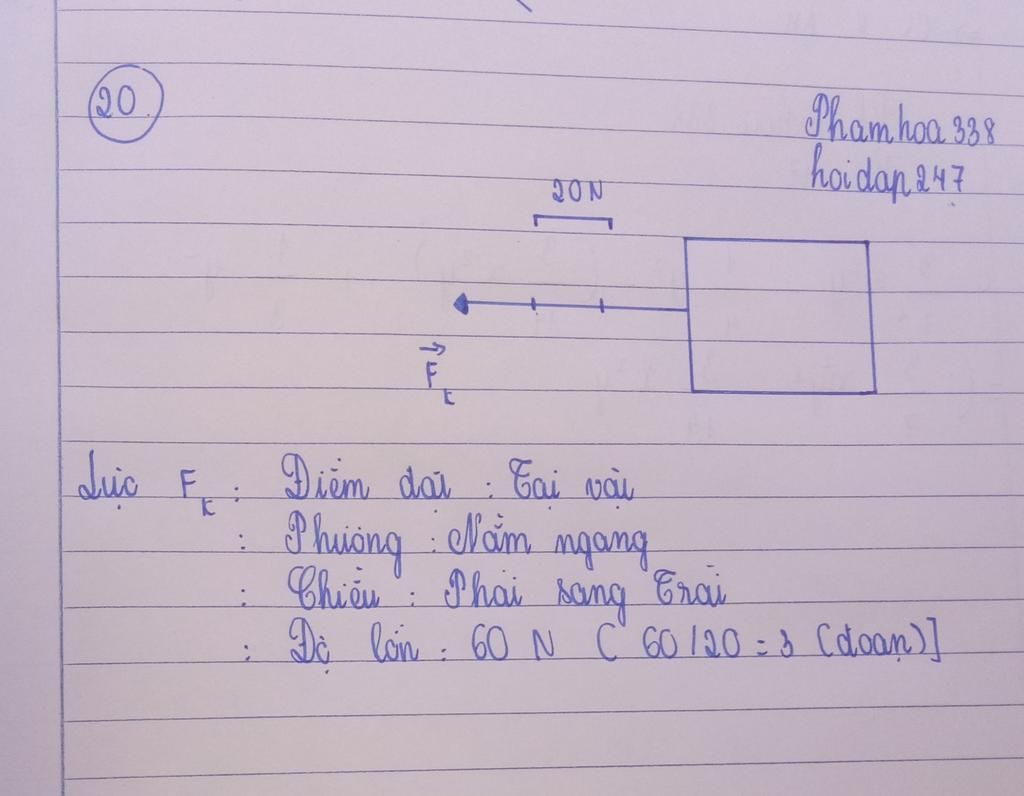 20.
Phamhoa338
hoidap247
20N
F
k
Lực F k : Điểm đặt : Tại vật
: Phương : Nằm ngang
: Chiều : Phải sang Trái
: Độ lớn : 60 N ( 60/20 = 3 (đoạn)]